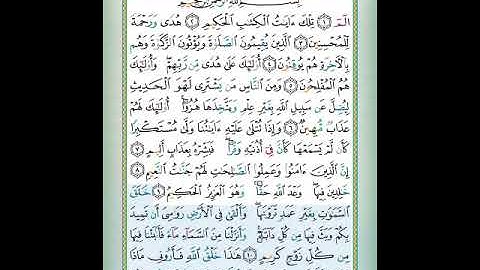 بِسْمِ اللَّهِ الرَّحْمَٰنِ الرَّحِيمِ
الٓمٓ ١ تِلْكَ ءَايَٰتُ الْكِتَٰبِ الْحَكِيمِ ٢ هُدًى وَرَحْمَةً
لِّلْمُحْسِنِينَ ٣ الَّذِينَ يُقِيمُونَ الصَّلَوٰةَ وَيُؤْتُونَ الزَّكَوٰةَ وَهُم
بِالْآخِرَةِ هُمْ يُوقِنُونَ ٤ أُولَٰئِكَ عَلَىٰ هُدًى مِّن رَّبِّهِمْ وَأُولَٰئِكَ
هُمُ الْمُفْلِحُونَ ٥ وَمِنَ النَّاسِ مَن يَشْتَرِي لَهْوَ الْحَدِيثِ
لِيُضِلَّ عَن سَبِيلِ اللَّهِ بِغَيْرِ عِلْمٍ وَيَتَّخِذَهَا هُزُوًا أُولَٰئِكَ لَهُمْ
عَذَابٌ مُّهِينٌ ٦ وَإِذَا تُتْلَىٰ عَلَيْهِ ءَايَٰتُنَا وَلَّىٰ مُسْتَكْبِرًا
كَأَن لَّمْ يَسْمَعْهَا كَأَنَّ فِي أُذُنَيْهِ وَقْرًا فَبَشِّرْهُ بِعَذَابٍ أَلِيمٍ ٧
إِنَّ الَّذِينَ ءَامَنُوا وَعَمِلُوا الصَّٰلِحَٰتِ لَهُمْ جَنَّٰتُ النَّعِيمِ ٨
خَٰلِدِينَ فِيهَا وَعْدَ اللَّهِ حَقًّا وَهُوَ الْعَزِيزُ الْحَكِيمُ ٩ خَلَقَ
السَّمَٰوَٰتِ بِغَيْرِ عَمَدٍ تَرَوْنَهَا وَأَلْقَىٰ فِي الْأَرْضِ رَوَٰسِيَ أَن تَمِيدَ
بِكُمْ وَبَثَّ فِيهَا مِن كُلِّ دَابَّةٍ وَأَنزَلْنَا مِنَ السَّمَاءِ مَاءً فَأَنبَتْنَا فِيهَا
مِن كُلِّ زَوْجٍ كَرِيمٍ ١٠ هَٰذَا خَلْقُ اللَّهِ فَأَرُونِي مَاذَا